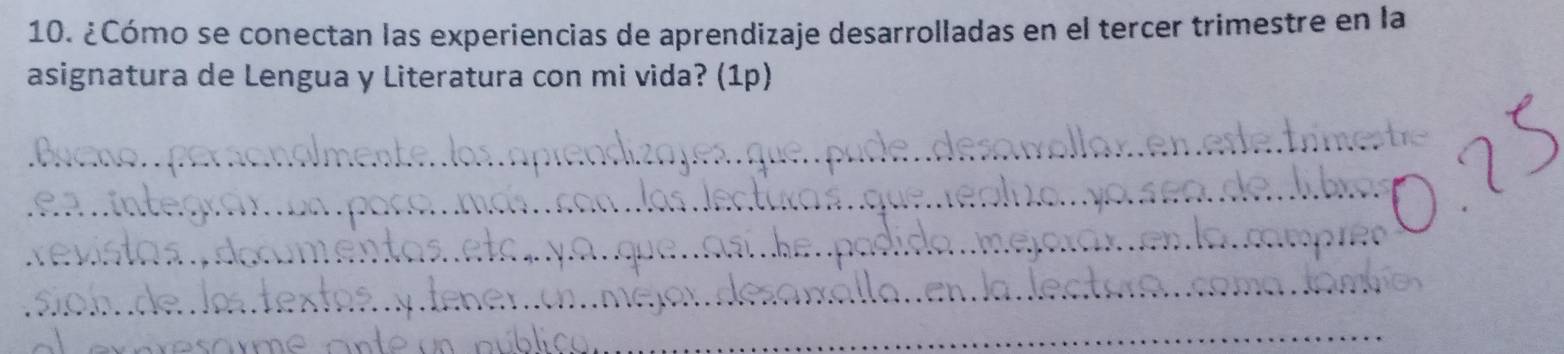 10. ¿Cómo se conectan las experiencias de aprendizaje desarrolladas en el tercer trimestre en la
asignatura de Lengua y Literatura con mi vida? (1p)
Bueno personalmente los aprendizajes que pude desarrollar en este trimestre
es integrar un poco más con las lecturas que realizo ya sea de libros
revistas, documentos etc, ya que asi he podido mejorar en la compren
sion de los textos y tener un mejor desarrollo en la lectura como tambien
al expresarme ante un público
0.75